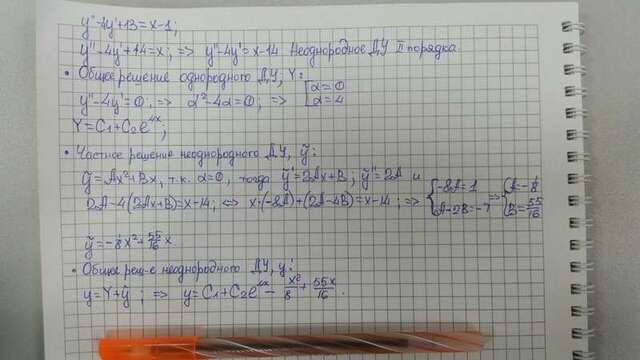 y''-4y'+13=x-1;
y''-4y'+14=x; => y''-4y'=x-14 Неоднородное ДУ II порядка
• Общее решение однородного ДУ, Y:
y''-4y'=0; => α²-4α=0; => [α=0 α=4
Y=C₁+C₂e⁴ˣ;
• Частное решение неоднородного ДУ, ỹ:
ỹ=Ax²+Bx, т.к. α=0, тогда ỹ'=2Ax+B; ỹ''=2A и
2A-4(2Ax+B)=x-14; <=> x·(-8A)+(2A-4B)=x-14; => {-8A=1 A-2B=-7 => {A=-1/8 B=55/16
ỹ=-1/8x²+55/16x
• Общее реш-е неоднородного ДУ, y:
y=Y+ỹ; => y=C₁+C₂e⁴ˣ-x²/8+55x/16.